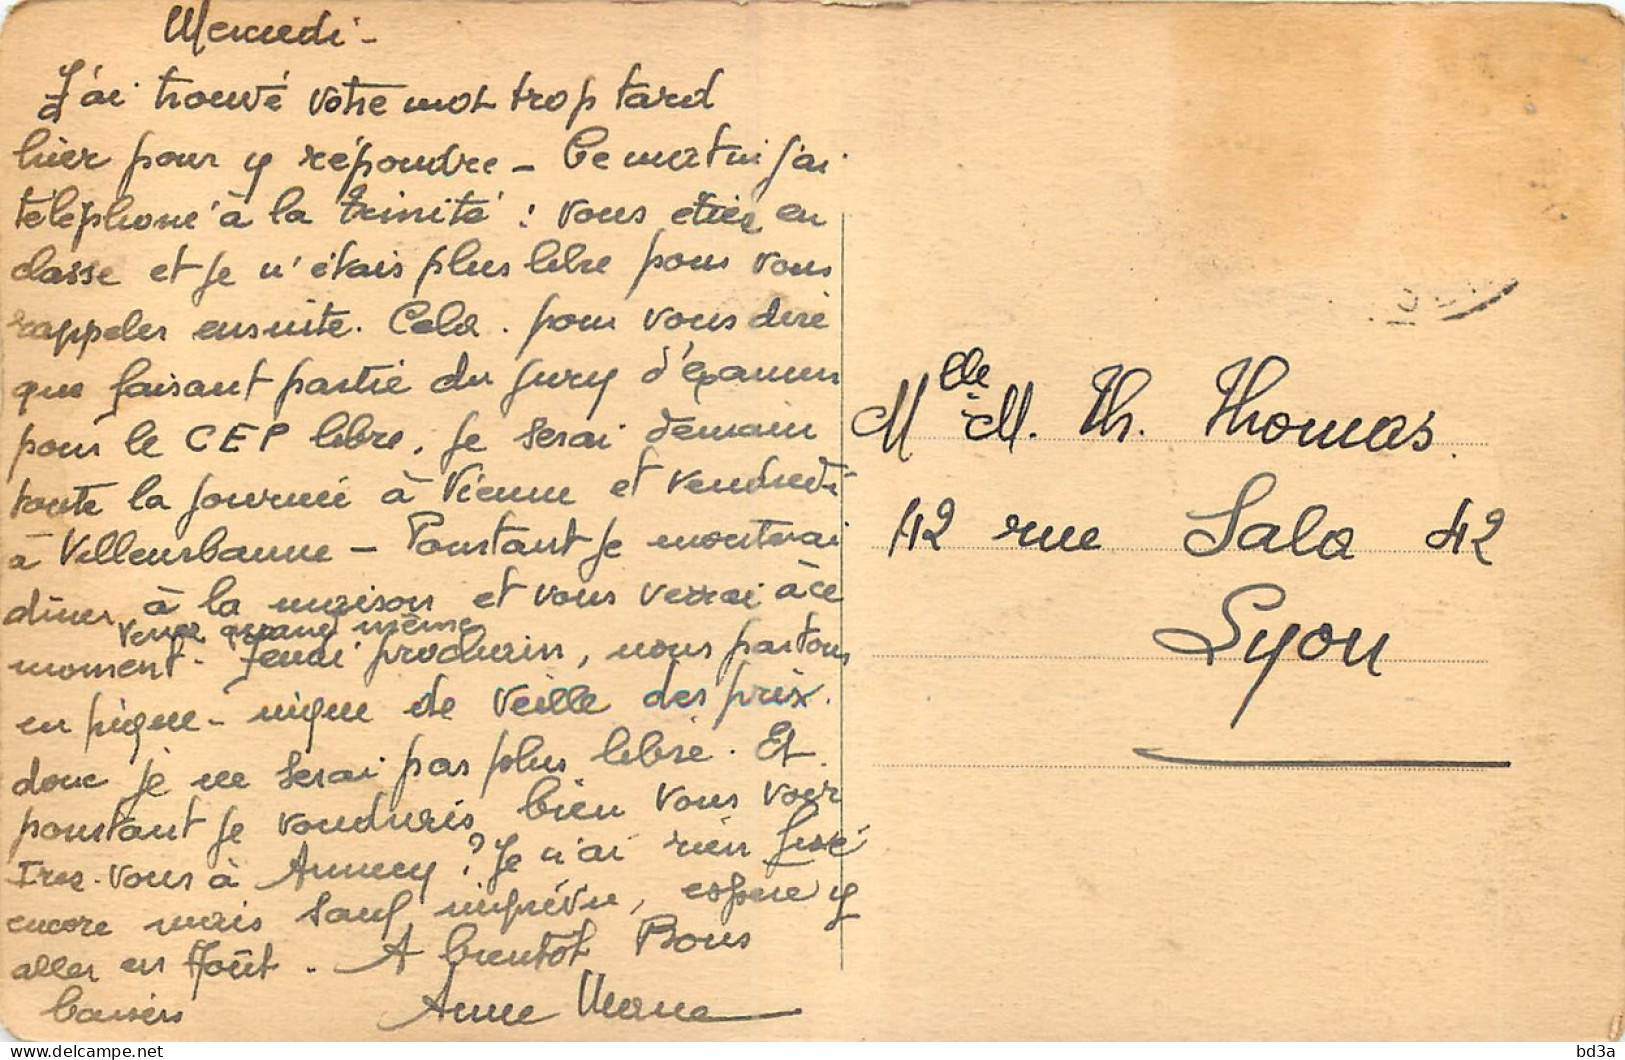 Mercredi -
J'ai trouvé votre mot trop tard
hier pour y répondre - Ce matin j'ai
téléphoné à la Trinité : vous étiez en
classe et je n'étais plus libre pour vous
rappeler ensuite. Cela pour vous dire
que faisant partie du jury d'examen
pour le CEP libre, je serai demain
toute la journée à Vienne et vendredi
à Villeurbanne - Pourtant je monterai
dîner à la maison et vous verrai à ce
venez quand même
moment - Jeudi prochain, nous partons
en pique-nique de veille des prix.
donc je ne serai pas plus libre. Et
pourtant je voudrais bien vous voir
Irez-vous à Annecy ? Je n'ai rien fixé
encore mais sauf imprévu, espère y
aller en Août. A bientôt Bons
baisers Anne Marie
Mlle M. Th. Thomas
42 rue Sala 42
Lyon
bd3a